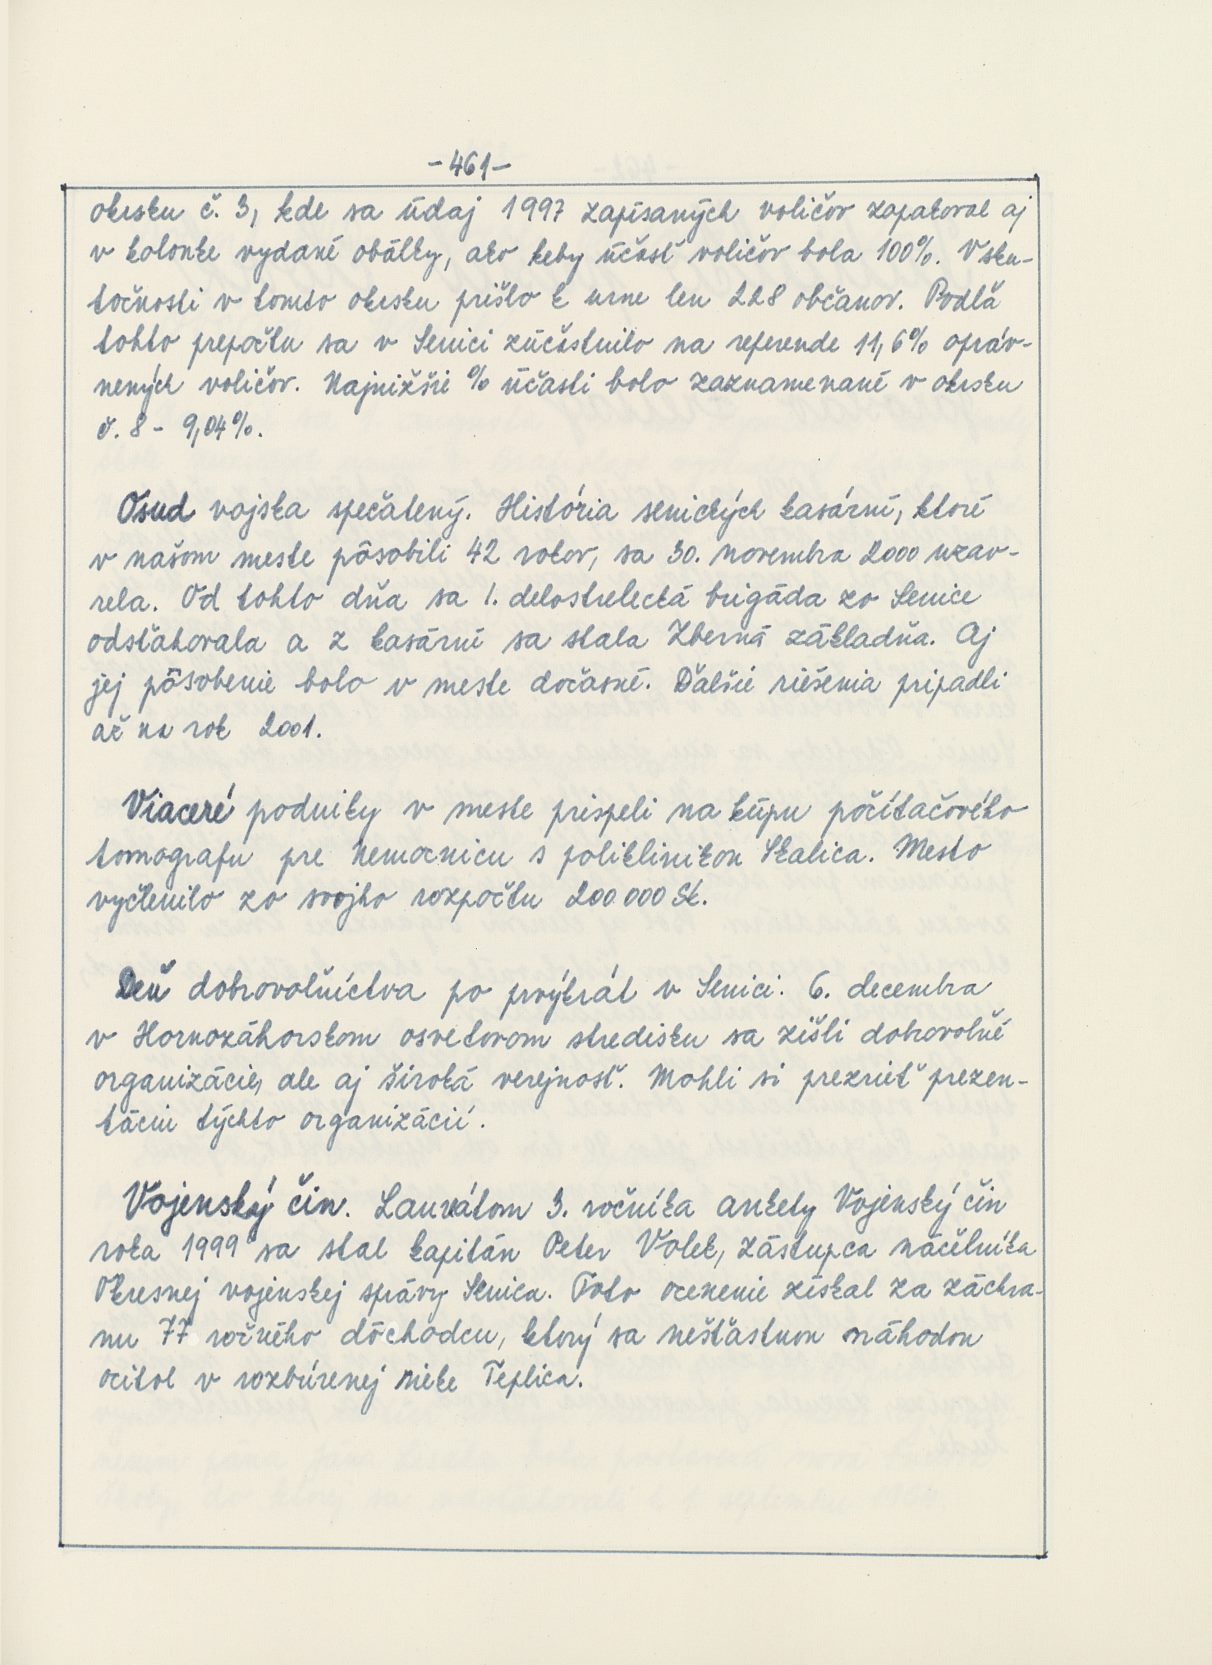 -461-
okrsku č. 3, kde sa údaj 1997 zapísaných voličov zopakoval aj
v kolonke vydané obálky, ako keby účasť voličov bola 100%. V sku-
točnosti v tomto okrsku prišlo k urne len 228 občanov. Podľa
tohto prepočtu sa v Senici zúčastnilo na referende 11,6% opráv-
nených voličov. Najnižšie % účasti bolo zaznamenané v okrsku
č. 8 - 9,04%.
Osud vojska spečatený. História senických kasární, ktoré
v našom meste pôsobili 42 rokov, sa 30. novembra 2000 uzav-
rela. Od tohto dňa sa 1. delostrelecká brigáda zo Senice
odsťahovala a z kasární sa stala Zberná základňa. Aj
jej pôsobenie bolo v meste dočasné. Ďalšie riešenia pripadli
až na rok 2001.
Viaceré podniky v meste prispeli na kúpu počítačového
tomografu pre Nemocnicu s poliklinikou Skalica. Mesto
vyčlenilo zo svojho rozpočtu 200 000 Sk.
Deň dobrovoľníctva po prvýkrát v Senici. 6. decembra
v Hornozáhorskom osvetovom stredisku sa zišli dobrovoľné
organizácie, ale aj široká verejnosť. Mohli si prezrieť prezen-
táciu týchto organizácií.
Vojenský čin. Laureátom 3. ročníka ankety Vojenský čin
roka 1999 sa stal kapitán Peter Volek, zástupca náčelníka
Okresnej vojenskej správy Senica. Toto ocenenie získal za záchra-
nu 77 ročného dôchodcu, ktorý sa nešťastnou náhodou
ocitol v rozbúrenej rieke Teplica.